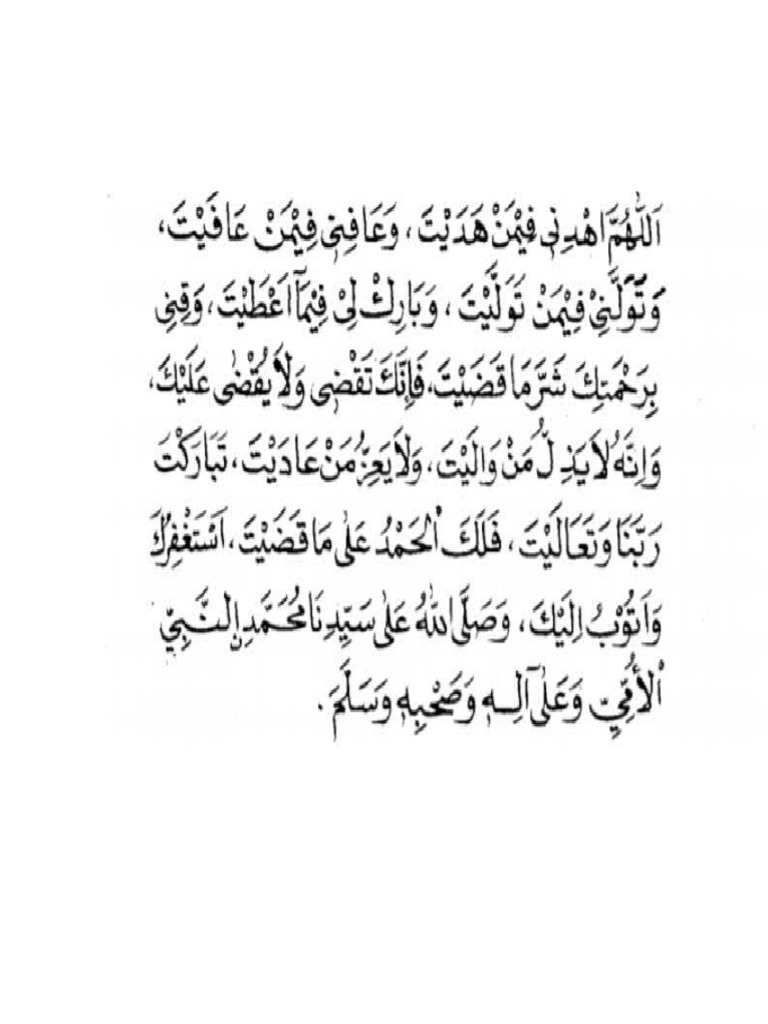 اَللّٰهُمَّ اهْدِنِى فِيْمَنْ هَدَيْتَ، وَعَافِنِى فِيْمَنْ عَافَيْتَ،
وَتَوَلَّنِىْ فِيْمَنْ تَوَلَّيْتَ، وَبَارِكْ لِىْ فِيْمَآ اَعْطَيْتَ، وَقِنِى
بِرَحْمَتِكَ شَرَّمَا قَضَيْتَ، فَاِنَّكَ تَقْضِى وَلاَ يُقْضٰى عَلَيْكَ،
وَاِنَّهُ لاَيَذِلُّ مَنْ وَالَيْتَ، وَلاَ يَعِزُّ مَنْ عَادَيْتَ، تَبَارَكْتَ
رَبَّنَا وَتَعَالَيْتَ، فَلَكَ الْحَمْدُ عَلٰى مَا قَضَيْتَ، اَسْتَغْفِرُكَ
وَاَتُوْبُ اِلَيْكَ، وَصَلَّى اللهُ عَلٰى سَيِّدِنَا مُحَمَّدِنِ النَّبِيِّ
الْأُمِّيِّ وَعَلٰى آلِهِ وَصَحْبِهِ وَسَلَّمَ.